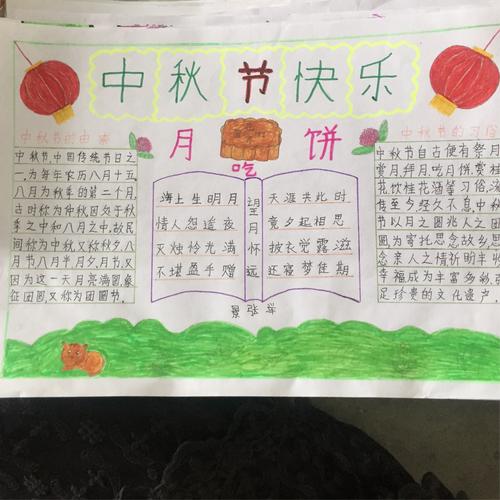 中秋节快乐
月 饼
吃
中秋节的由来
中秋节,中国传统节日之
一,为每年农历八月十五,
八月为秋季的第二个月,
古时称为仲秋因处于秋
季之中和八月之中,故民
间称为中秋又称秋夕,八
月节八月半月夕,月节又
因为这一天月亮满圆,象
征团圆,又称为团圆节,
海上生明月
情人怨遥夜
灭烛怜光满
不堪盈手赠
望月怀远
天涯共此时
竟夕起相思
披衣觉露滋
还寝梦佳期
中秋节的习俗
中秋节自古便有祭月
赏月,拜月,吃月饼,赏桂
花饮桂花酒等习俗,
传至今经久不息,中秋
节以月之圆兆人之团
圆为寄托思念故乡,思
念亲人之情祈盼丰收
幸福成为丰富多彩,弥
足珍贵的文化遗产